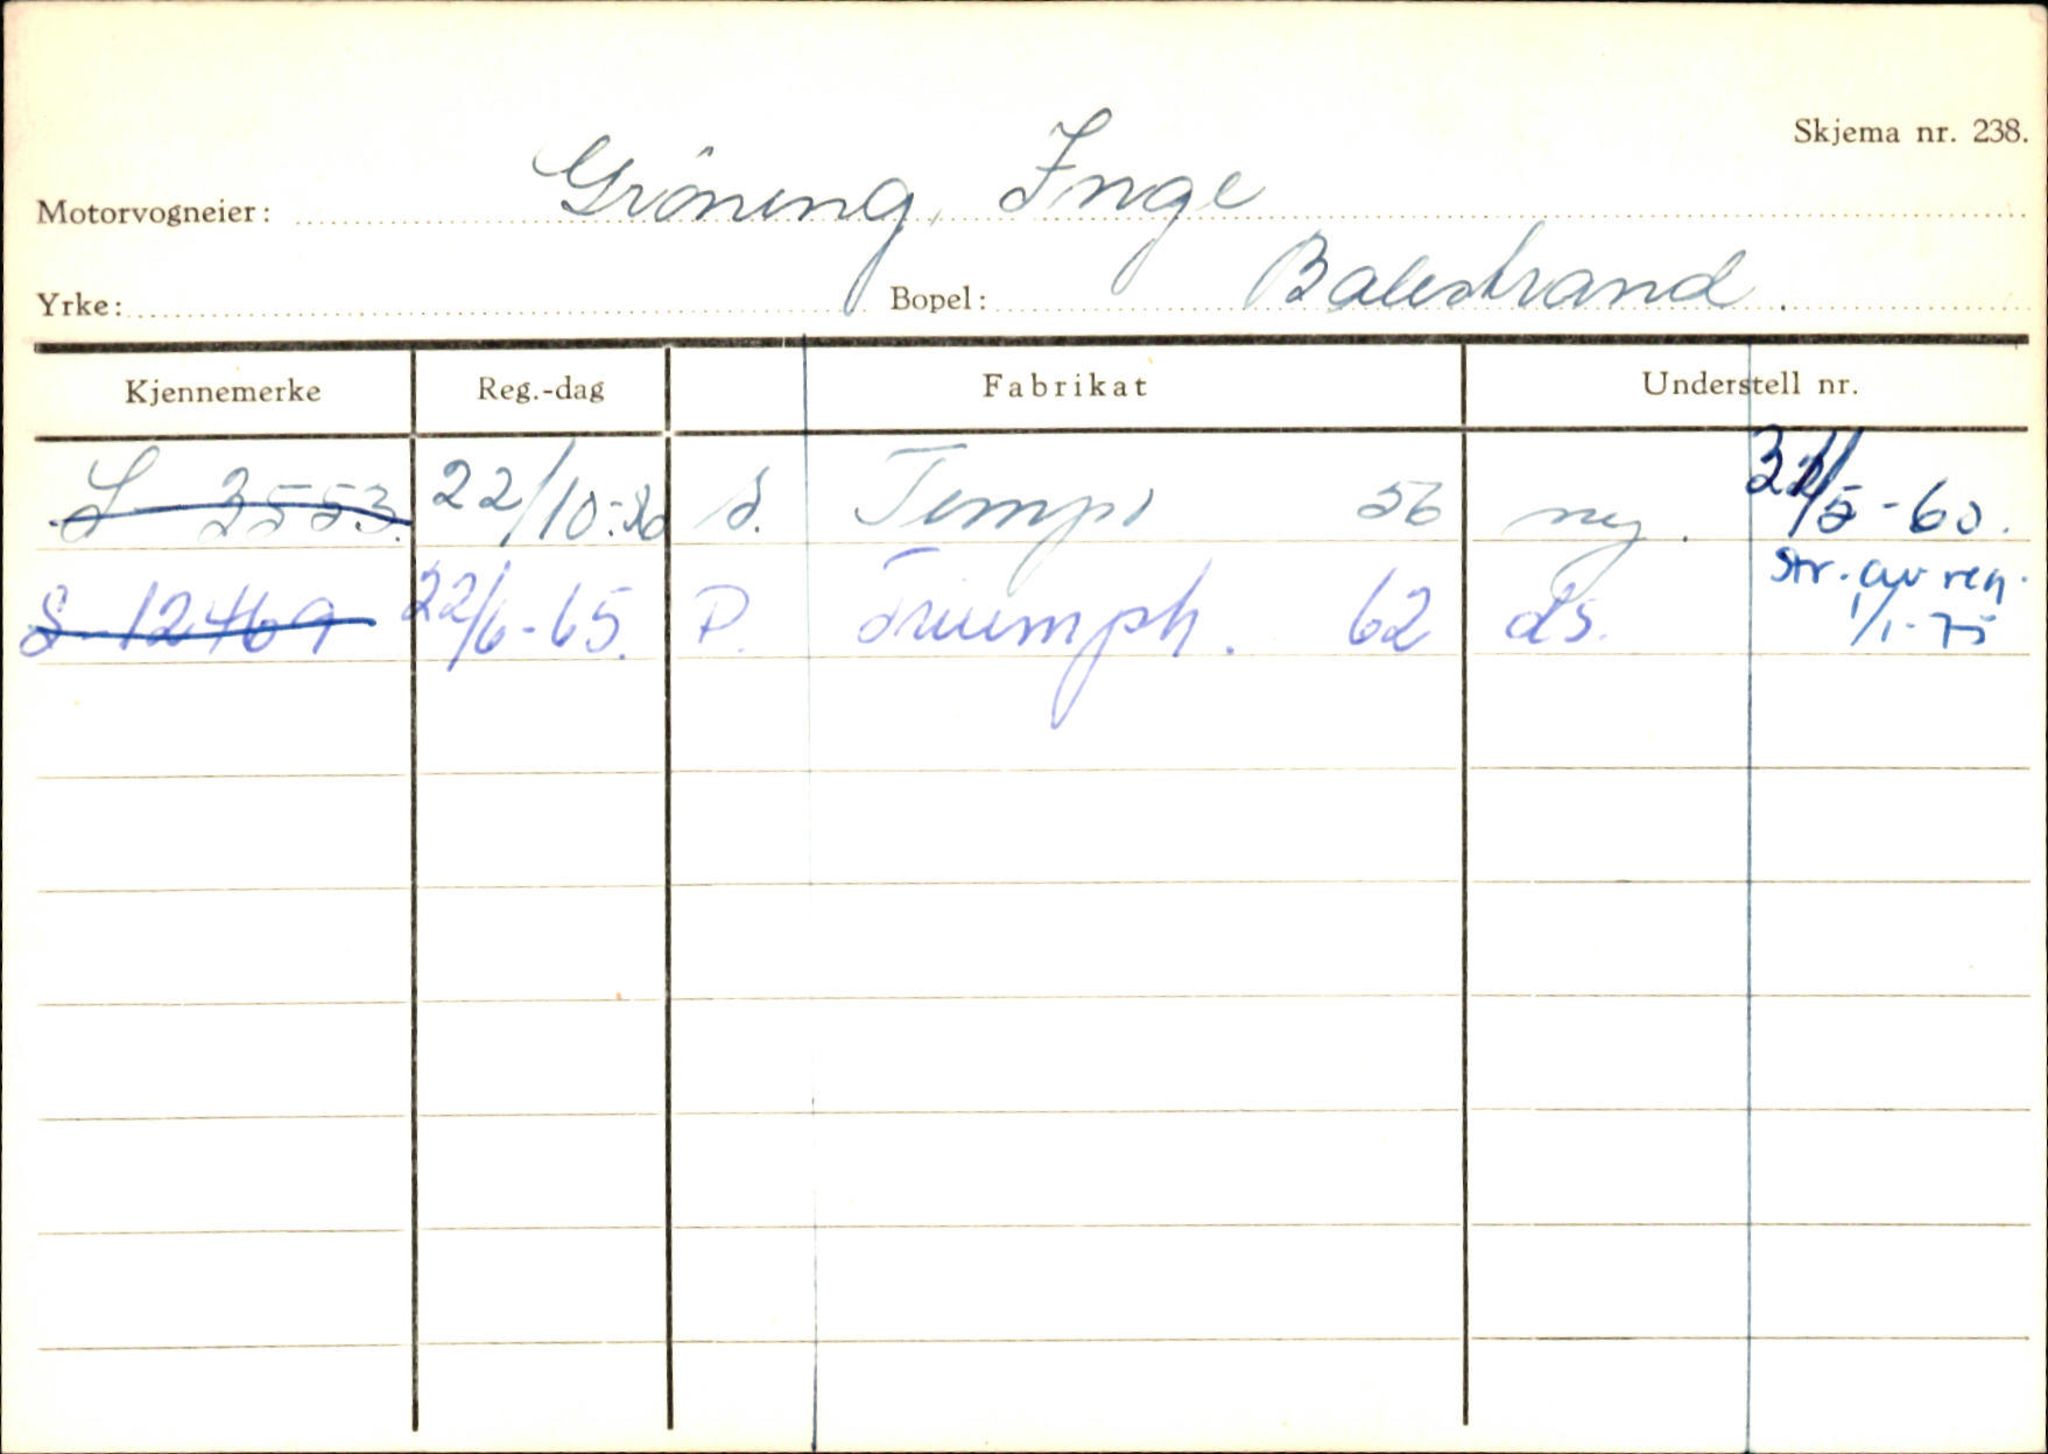 Skjema nr. 238.
Motorvogneier: Gröning, Inge
Yrke: Bopel: Balestrand.
Kjennemerke Reg.-dag Fabrikat Understell nr.
S 3553. 22/10-56 S. Tempo 56 ny. /5-60.
S-12469 22/6-65. P. Triumph. 62 ds. str. av reg. 1/1-75